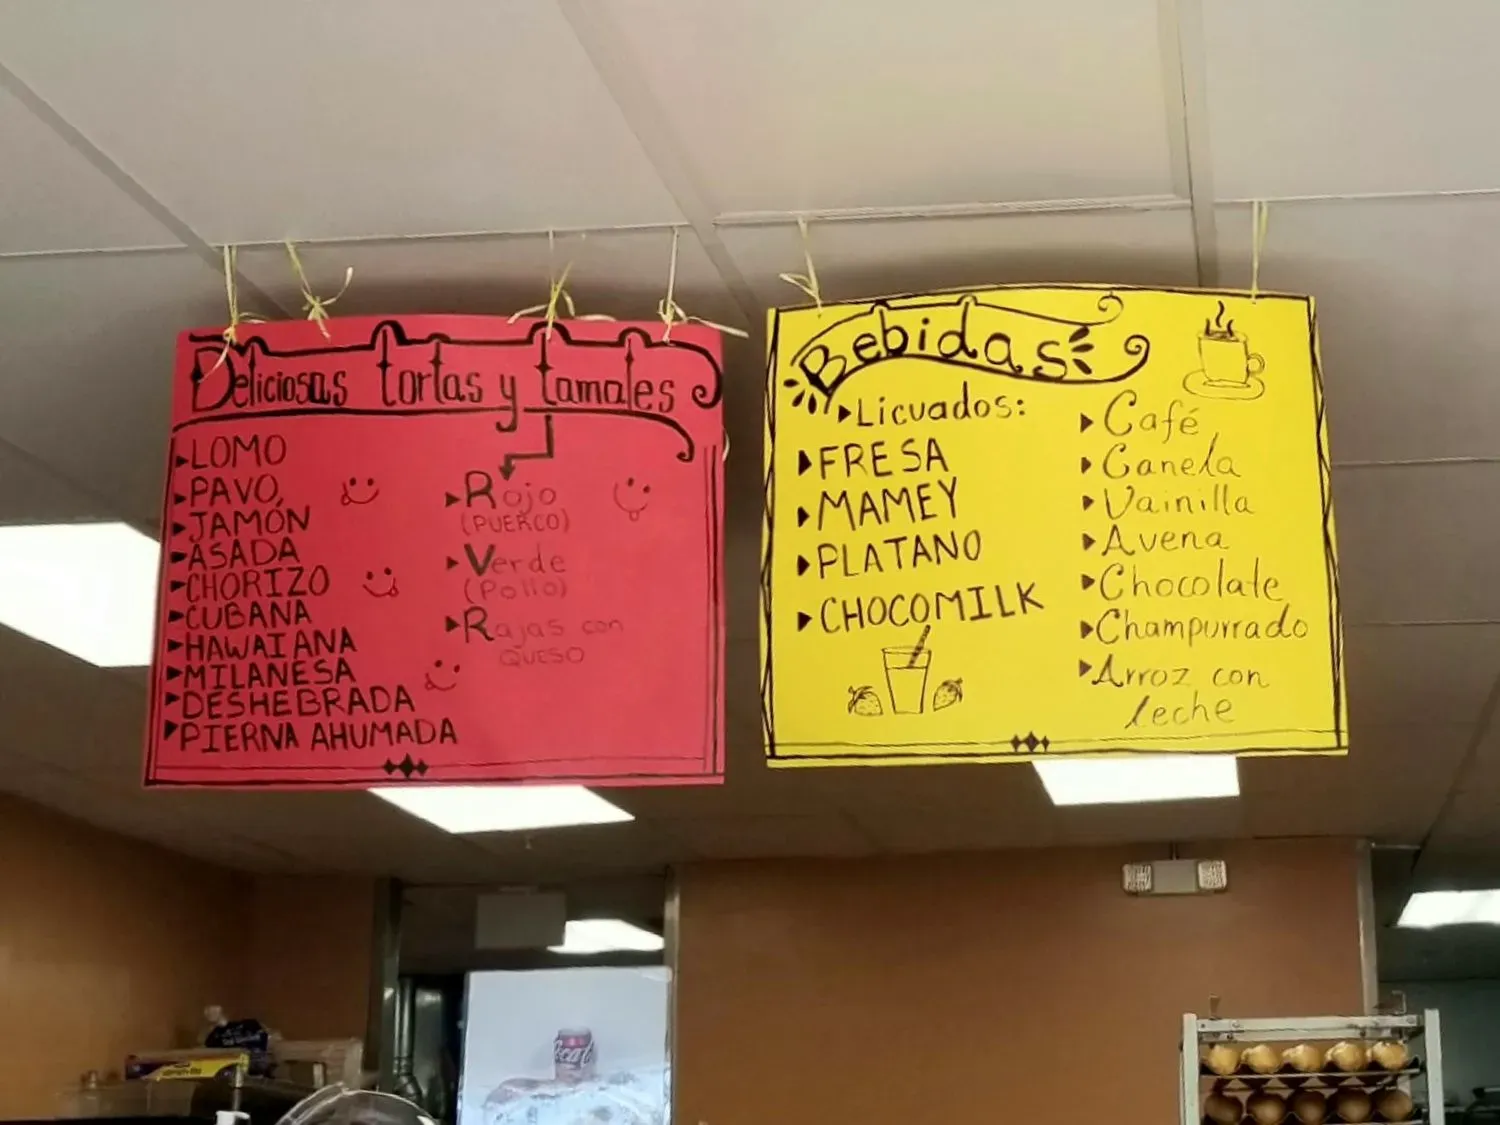 Deliciosas tortas y tamales
LOMO
PAVO
JAMÓN
ASADA
CHORIZO
CUBANA
HAWAIANA
MILANESA
DESHEBRADA
PIERNA AHUMADA
Rojo
(PUERCO)
Verde
(Pollo)
Rajas con
QUESO
Bebidas
Licuados:
FRESA
MAMEY
PLATANO
CHOCOMILK
Café
Canela
Vainilla
Avena
Chocolate
Champurrado
Arroz con
leche